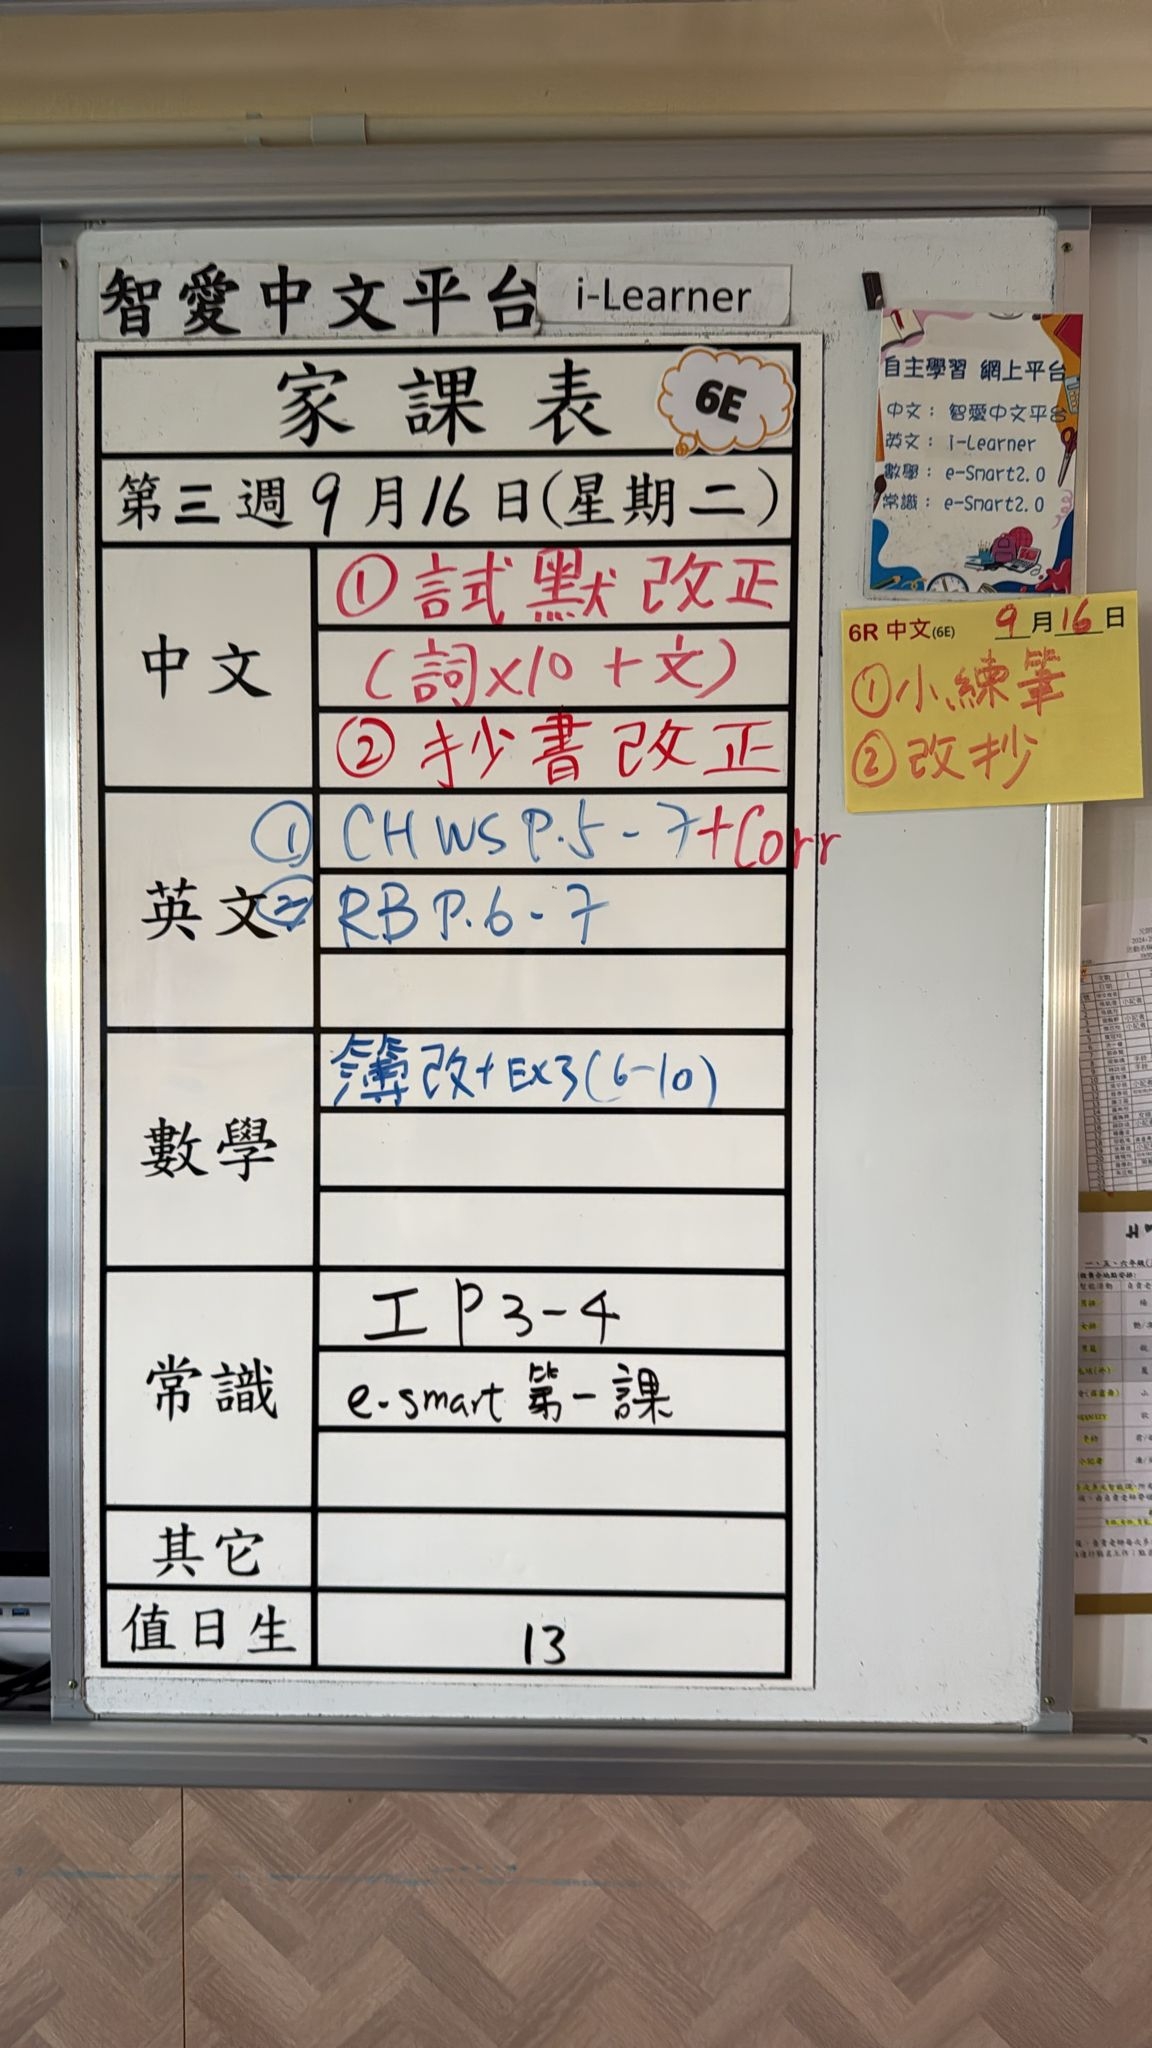 智愛中文平台 i-Learner
家課表 6E
第三週9月16日(星期二)
中文
①試默改正
(詞x10+文)
②抄書改正
英文
① CH WS P.5-7+Corr
② RB P.6-7
數學
簿改+Ex3(6-10)
常識
工 P3-4
e-smart 第一課
其它
值日生
13
自主學習 網上平台
中文：智愛中文平台
英文：i-Learner
數學：e-Smart2.0
常識：e-Smart2.0
6R 中文(6E) 9月16日
①小練筆
②改抄